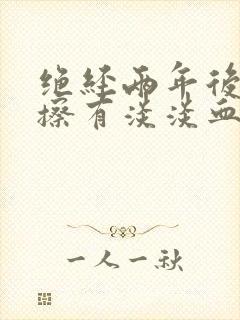 绝经两年後
擦有淡淡血
一人一秋